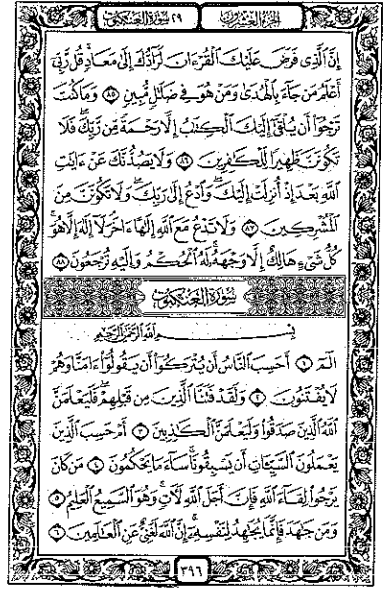 الجزء العشرون ٢٩ سورة العنكبوت
إِنَّ ٱلَّذِى فَرَضَ عَلَيْكَ ٱلْقُرْءَانَ لَرَآدُّكَ إِلَىٰ مَعَادٍ قُل رَّبِّىٓ
أَعْلَمُ مَن جَآءَ بِٱلْهُدَىٰ وَمَنْ هُوَ فِى ضَلَٰلٍ مُّبِينٍ ٨٥ وَمَا كُنتَ
تَرْجُوٓا۟ أَن يُلْقَىٰٓ إِلَيْكَ ٱلْكِتَٰبُ إِلَّا رَحْمَةً مِّن رَّبِّكَ فَلَا
تَكُونَنَّ ظَهِيرًا لِّلْكَٰفِرِينَ ٨٦ وَلَا يَصُدُّنَّكَ عَنْ ءَايَٰتِ
ٱللَّهِ بَعْدَ إِذْ أُنزِلَتْ إِلَيْكَ وَٱدْعُ إِلَىٰ رَبِّكَ وَلَا تَكُونَنَّ مِنَ
ٱلْمُشْرِكِينَ ٨٧ وَلَا تَدْعُ مَعَ ٱللَّهِ إِلَٰهًا ءَاخَرَ لَآ إِلَٰهَ إِلَّا هُوَ
كُلُّ شَىْءٍ هَالِكٌ إِلَّا وَجْهَهُۥ لَهُ ٱلْحُكْمُ وَإِلَيْهِ تُرْجَعُونَ ٨٨
سورة العنكبوت
بِسْمِ ٱللَّهِ ٱلرَّحْمَٰنِ ٱلرَّحِيمِ
الٓمٓ ١ أَحَسِبَ ٱلنَّاسُ أَن يُتْرَكُوٓا۟ أَن يَقُولُوٓا۟ ءَامَنَّا وَهُمْ
لَا يُفْتَنُونَ ٢ وَلَقَدْ فَتَنَّا ٱلَّذِينَ مِن قَبْلِهِمْ فَلَيَعْلَمَنَّ
ٱللَّهُ ٱلَّذِينَ صَدَقُوا۟ وَلَيَعْلَمَنَّ ٱلْكَٰذِبِينَ ٣ أَمْ حَسِبَ ٱلَّذِينَ
يَعْمَلُونَ ٱلسَّيِّـَٔاتِ أَن يَسْبِقُونَا سَآءَ مَا يَحْكُمُونَ ٤ مَن كَانَ
يَرْجُوا۟ لِقَآءَ ٱللَّهِ فَإِنَّ أَجَلَ ٱللَّهِ لَـَٔاتٍ وَهُوَ ٱلسَّمِيعُ ٱلْعَلِيمُ ٥
وَمَن جَٰهَدَ فَإِنَّمَا يُجَٰهِدُ لِنَفْسِهِۦٓ إِنَّ ٱللَّهَ لَغَنِىٌّ عَنِ ٱلْعَٰلَمِينَ ٦
٣٩٦